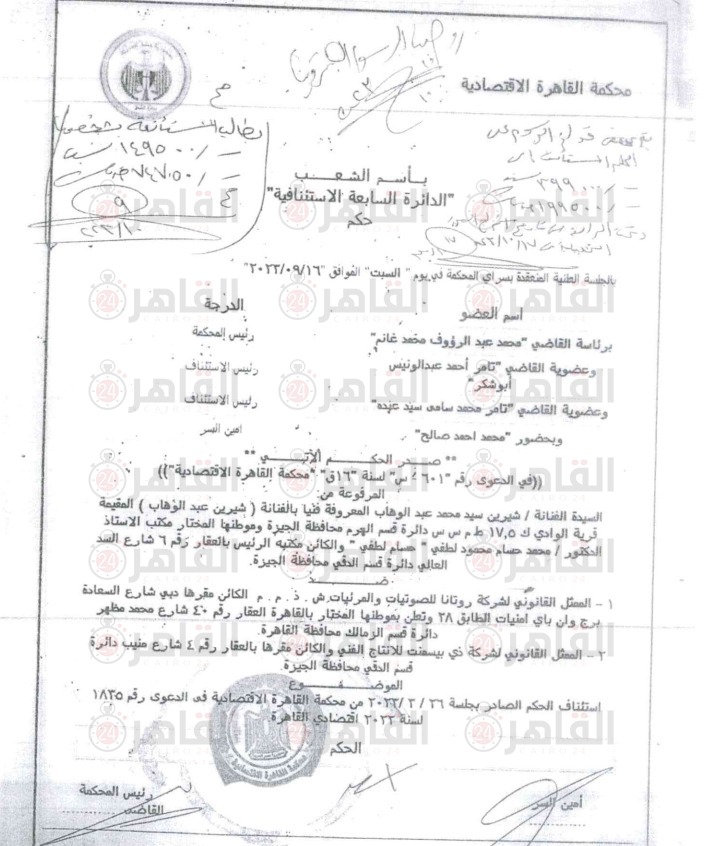 محكمة القاهرة الاقتصادية
يطالب المستأنفة بشخصها
١٤٩٥٠٠٠/-
بـأسم الشعـــب
"الدائرة السابعة الاستئنافية"
حكم
بالجلسة العلنية المنعقدة بسراي المحكمة في يوم " السبت" الموافق "٢٠٢٣/٠٩/١٦"
اسم العضو
الدرجة
برئاسة القاضي "محمد عبد الرؤوف محمد غانم"
رئيس المحكمة
وعضوية القاضي "تامر أحمد عبدالونيس أبوشكر"
رئيس الاستئناف
وعضوية القاضي "تامر محمد سامى سيد عبده"
رئيس الاستئناف
وبحضور "محمد احمد صالح"
امين السر
** صـــدر الحكـــم الأتـــي **
((في الدعوى رقم "٦٠١ س" لسنة "١٦ق" "محكمة القاهرة الاقتصادية"))
المرفوعة من:
السيدة الفنانة / شيرين سيد محمد عبد الوهاب المعروفة فنيا بالفنانة ( شيرين عبد الوهاب ) المقيمة
قرية الوادي ك ١٧,٥ ط م س س دائرة قسم الهرم محافظة الجيزة وموطنها المختار مكتب الاستاذ
الدكتور / محمد حسام محمود لطفي " حسام لطفي " والكائن مكتبه الرئيس بالعقار رقم ٦ شارع السد
العالي دائرة قسم الدقي محافظة الجيزة.
ضـــــــد
١ - الممثل القانوني لشركة روتانا للصوتيات والمرئيات ش . ذ . م . م الكائن مقرها دبي شارع السعادة
برج وان باي امنيات الطابق ٢٨ وتعلن بموطنها المختار بالقاهرة العقار رقم ٤٠ شارع محمد مظهر
دائرة قسم الزمالك محافظة القاهرة.
٢ - الممثل القانوني لشركة ذي بيسمنت للانتاج الفني والكائن مقرها بالعقار رقم ٤ شارع منيب دائرة
قسم الدقي محافظة الجيزة.
الموضـــــوع
استئناف الحكم الصادر بجلسة ٢٦ / ٣ / ٢٠٢٣ من محكمة القاهرة الاقتصادية فى الدعوى رقم ١٨٣٥
لسنة ٢٠٢٢ اقتصادي القاهرة.
الحكم
محكمة القاهرة الاقتصادية
أمين السر
رئيس المحكمة
القاضى
القاهرة 24
CAIRO 24